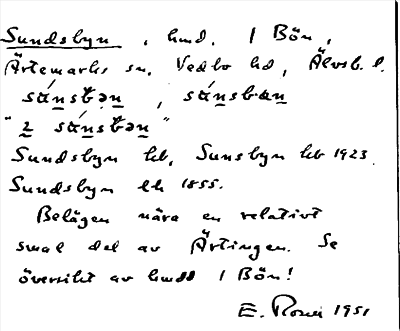 Sundsbyn, hmd. 1 Bön,
Ärtemarks sn, Vedbo hd, Älvsb. l.
sánsbən, sánsban
"2 sánsbən"
Sundsbyn kb, Sunsbyn kb 1923.
Sundsbyn lk 1855.
Belägen nära en relativt
smal del av Ärtingen. Se
översikt av hmdt 1 Bön!
E. 1951